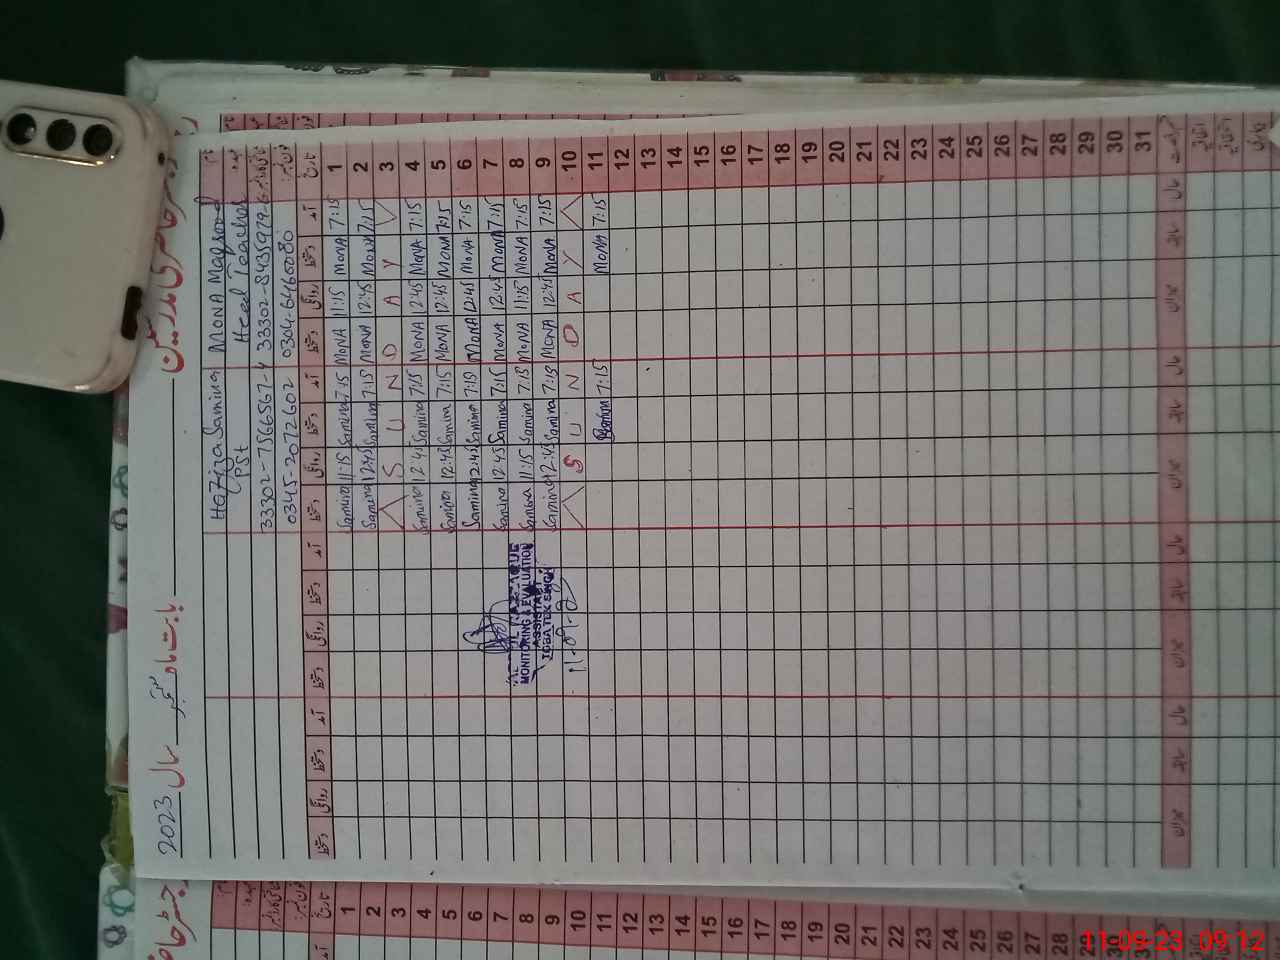 رجسٹر حاضری مدرسین
بابت ماہ ستمبر سال 2023
MONA Maqsood
Head Teacher
33302-8435979-6
0304-6466080
Hafiza Samina
PSt
33302-7566567-4
0345-2072602
تاریخ آمد دستخط روانگی دستخط آمد دستخط روانگی دستخط آمد دستخط روانگی دستخط آمد دستخط روانگی دستخط
1 7:15 MONA 11:15 MONA 7:15 Samina 11:15 Samina
2 7:15 MONA 12:45 MONA 7:15 Samina 12:45 Samina
3 Y A D N U S
4 7:15 MONA 12:45 MONA 7:15 Samina 12:45 Samina
5 7:15 MONA 12:45 MONA 7:15 Samina 12:45 Samina
6 7:15 MONA 12:45 MONA 7:15 Samina 12:45 Samina
7 7:15 MONA 12:45 MONA 7:15 Samina 12:45 Samina
8 7:15 MONA 11:15 MONA 7:15 Samina 11:15 Samina
9 7:15 MONA 12:45 MONA 7:15 Samina 12:45 Samina
10 Y A D N U S
11 7:15 MONA 7:15
12
13
14
15
16
17
18
19
20
21
22
23
24
25
26
27
28
29
30
31
MONITORING & EVALUATION
ASSISTANT
TOBA TEK SINGH
11-09-23
1
2
3
4
5
6
7
8
9
10
11
12
13
14
15
16
17
18
19
20
21
22
23
24
25
26
27
28
29
30
31
11-09-23 09:12